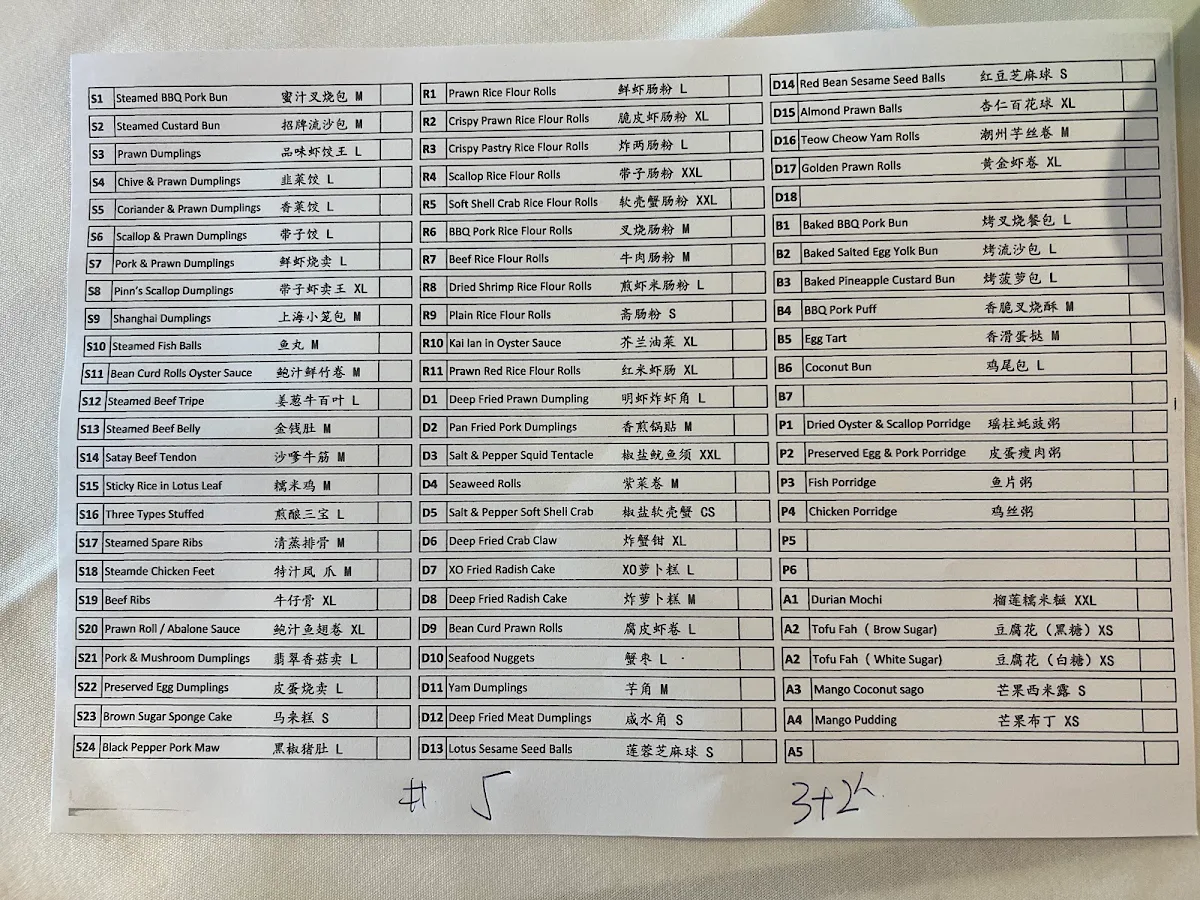 S1 Steamed BBQ Pork Bun 蜜汁叉烧包 M
S2 Steamed Custard Bun 招牌流沙包 M
S3 Prawn Dumplings 品味虾饺王 L
S4 Chive & Prawn Dumplings 韭菜饺 L
S5 Coriander & Prawn Dumplings 香菜饺 L
S6 Scallop & Prawn Dumplings 带子饺 L
S7 Pork & Prawn Dumplings 鲜虾烧卖 L
S8 Pinn's Scallop Dumplings 带子虾卖王 XL
S9 Shanghai Dumplings 上海小笼包 M
S10 Steamed Fish Balls 鱼丸 M
S11 Bean Curd Rolls Oyster Sauce 鲍汁鲜竹卷 M
S12 Steamed Beef Tripe 姜葱牛百叶 L
S13 Steamed Beef Belly 金钱肚 M
S14 Satay Beef Tendon 沙嗲牛筋 M
S15 Sticky Rice in Lotus Leaf 糯米鸡 M
S16 Three Types Stuffed 煎酿三宝 L
S17 Steamed Spare Ribs 清蒸排骨 M
S18 Steamde Chicken Feet 特汁凤 爪 M
S19 Beef Ribs 牛仔骨 XL
S20 Prawn Roll / Abalone Sauce 鲍汁鱼翅卷 XL
S21 Pork & Mushroom Dumplings 翡翠香菇卖 L
S22 Preserved Egg Dumplings 皮蛋烧卖 L
S23 Brown Sugar Sponge Cake 马来糕 S
S24 Black Pepper Pork Maw 黑椒猪肚 L
R1 Prawn Rice Flour Rolls 鲜虾肠粉 L
R2 Crispy Prawn Rice Flour Rolls 脆皮虾肠粉 XL
R3 Crispy Pastry Rice Flour Rolls 炸两肠粉 L
R4 Scallop Rice Flour Rolls 带子肠粉 XXL
R5 Soft Shell Crab Rice Flour Rolls 软壳蟹肠粉 XXL
R6 BBQ Pork Rice Flour Rolls 叉烧肠粉 M
R7 Beef Rice Flour Rolls 牛肉肠粉 M
R8 Dried Shrimp Rice Flour Rolls 煎虾米肠粉 L
R9 Plain Rice Flour Rolls 斋肠粉 S
R10 Kai lan in Oyster Sauce 芥兰油菜 XL
R11 Prawn Red Rice Flour Rolls 红米虾肠 XL
D1 Deep Fried Prawn Dumpling 明虾炸虾角 L
D2 Pan Fried Pork Dumplings 香煎锅贴 M
D3 Salt & Pepper Squid Tentacle 椒盐鱿鱼须 XXL
D4 Seaweed Rolls 紫菜卷 M
D5 Salt & Pepper Soft Shell Crab 椒盐软壳蟹 CS
D6 Deep Fried Crab Claw 炸蟹钳 XL
D7 XO Fried Radish Cake XO萝卜糕 L
D8 Deep Fried Radish Cake 炸萝卜糕 M
D9 Bean Curd Prawn Rolls 腐皮虾卷 L
D10 Seafood Nuggets 蟹枣 L
D11 Yam Dumplings 芋角 M
D12 Deep Fried Meat Dumplings 咸水角 S
D13 Lotus Sesame Seed Balls 莲蓉芝麻球 S
D14 Red Bean Sesame Seed Balls 红豆芝麻球 S
D15 Almond Prawn Balls 杏仁百花球 XL
D16 Teow Cheow Yam Rolls 潮州芋丝卷 M
D17 Golden Prawn Rolls 黄金虾卷 XL
D18
B1 Baked BBQ Pork Bun 烤叉烧餐包 L
B2 Baked Salted Egg Yolk Bun 烤流沙包 L
B3 Baked Pineapple Custard Bun 烤菠萝包 L
B4 BBQ Pork Puff 香脆叉烧酥 M
B5 Egg Tart 香滑蛋挞 M
B6 Coconut Bun 鸡尾包 L
B7
P1 Dried Oyster & Scallop Porridge 瑶柱蚝豉粥
P2 Preserved Egg & Pork Porridge 皮蛋瘦肉粥
P3 Fish Porridge 鱼片粥
P4 Chicken Porridge 鸡丝粥
P5
P6
A1 Durian Mochi 榴莲糯米糍 XXL
A2 Tofu Fah ( Brow Sugar) 豆腐花（黑糖）XS
A2 Tofu Fah ( White Sugar) 豆腐花（白糖）XS
A3 Mango Coconut sago 芒果西米露 S
A4 Mango Pudding 芒果布丁 XS
A5
# 5
3+2